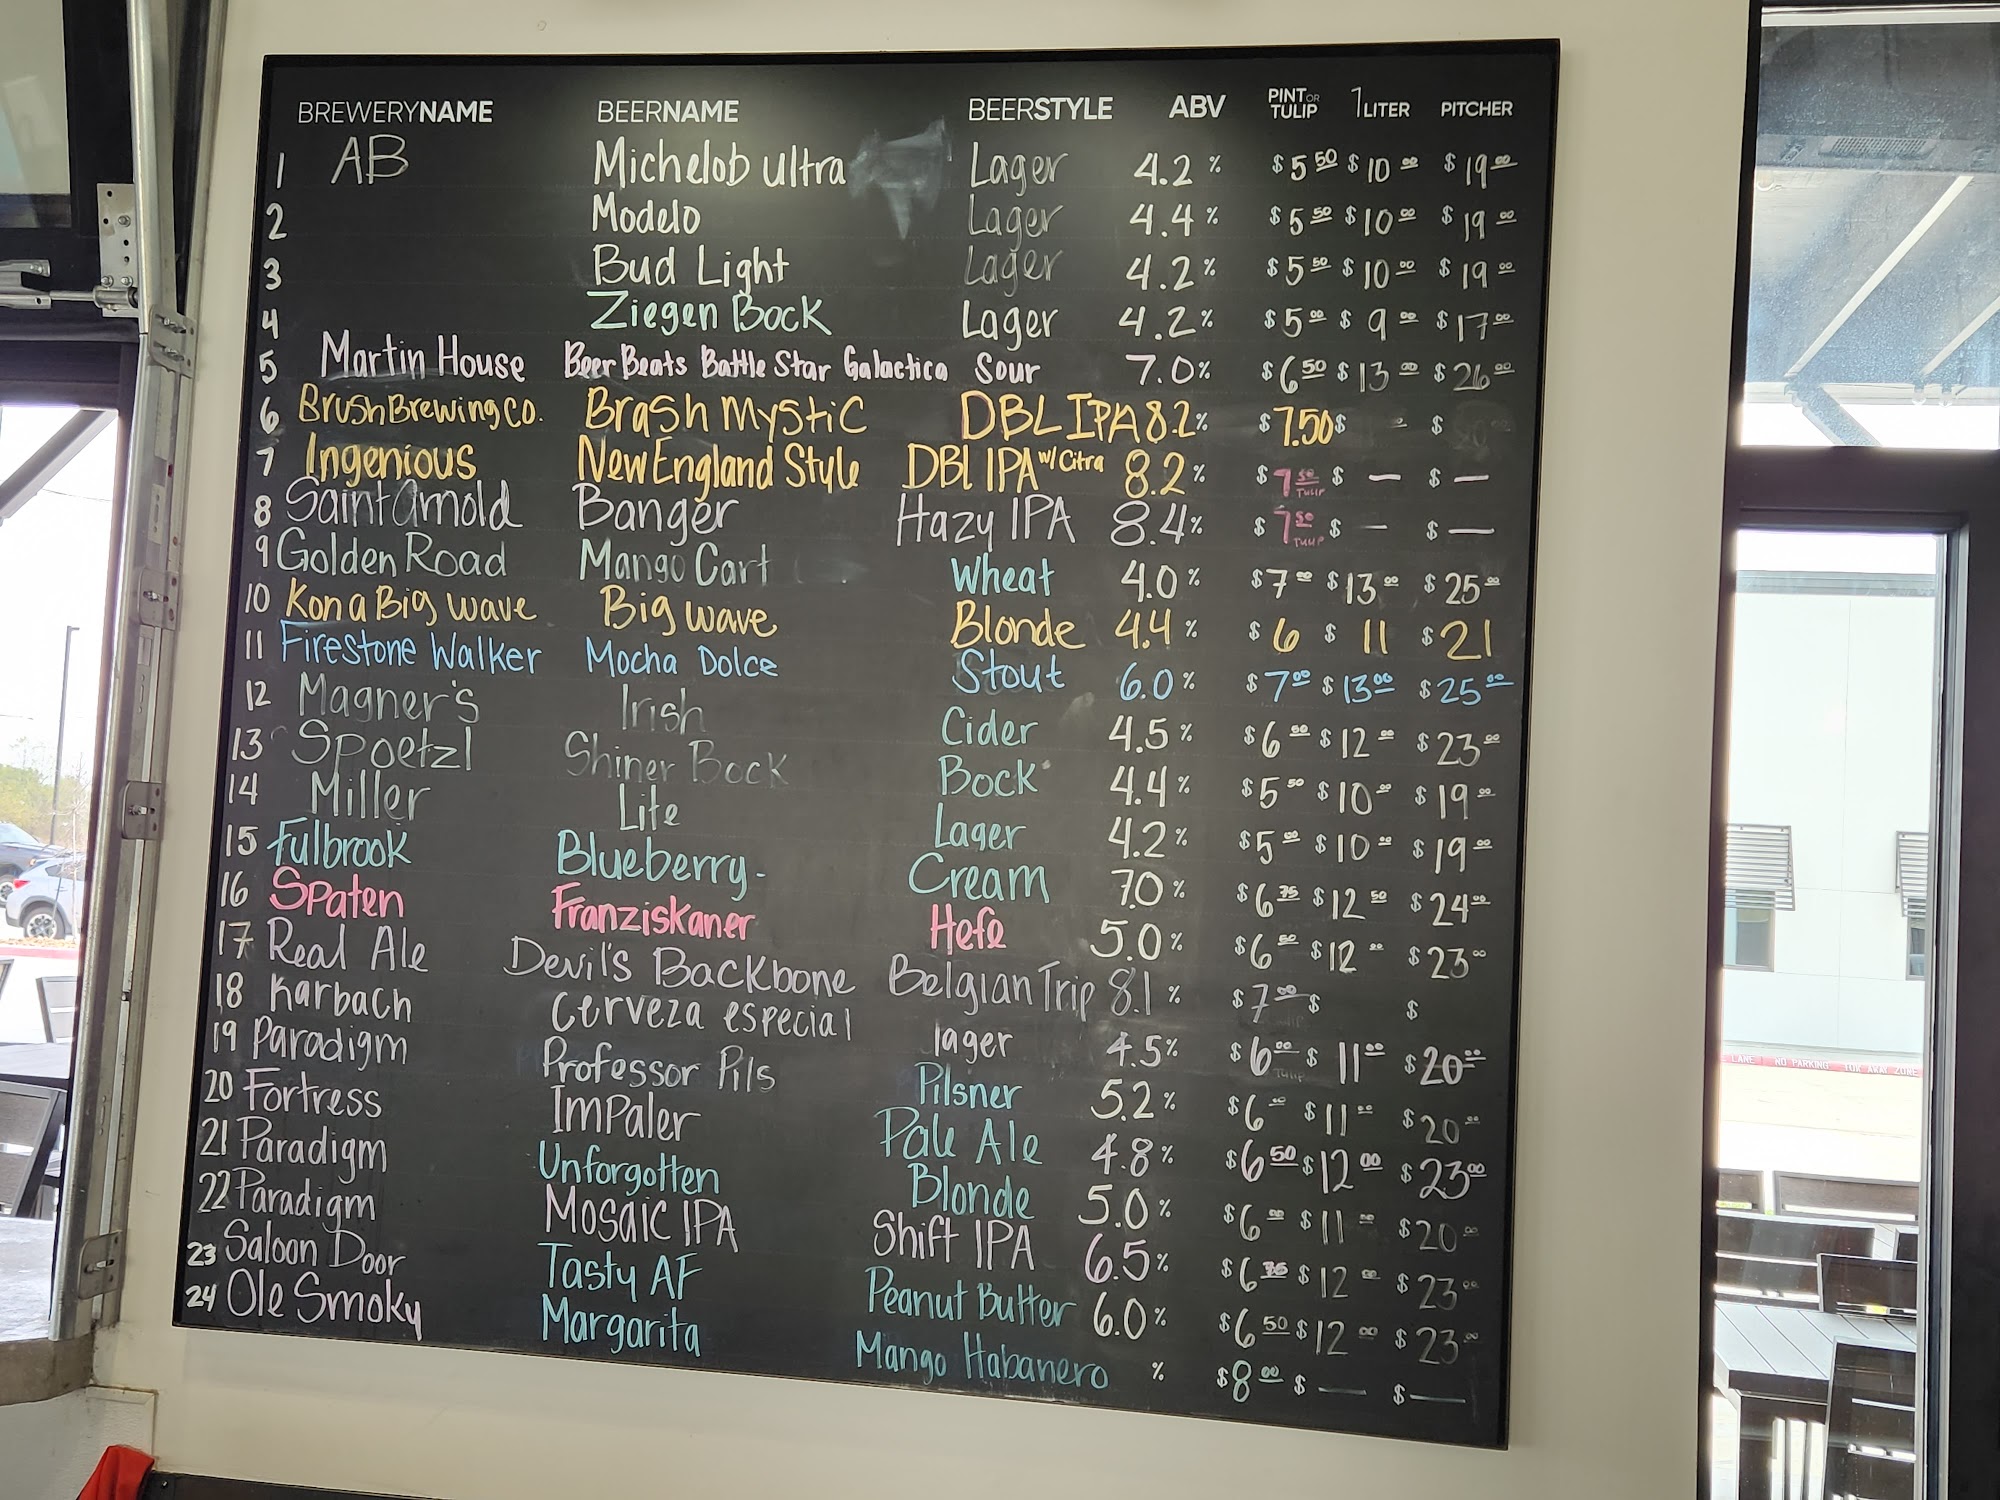 BREWERYNAME BEERNAME BEERSTYLE ABV PINT OR TULIP 1 LITER PITCHER
1 AB Michelob ultra Lager 4.2 % $5 50 $10 00 $19 00
2 Modelo Lager 4.4 % $5 50 $10 00 $19 00
3 Bud Light Lager 4.2 % $5 50 $10 00 $19 00
4 Ziegen Bock Lager 4.2 % $5 00 $9 00 $17 00
5 Martin House Beer Beats Battle Star Galactica Sour 7.0 % $6 50 $13 00 $26 00
6 Brush Brewing Co. Brash Mystic DBL IPA 8.2 % $7.50 $ - $
7 Ingenious New England Style DBL IPA w/ Citra 8.2 % $7 50 TULIP $ — $ —
8 Saint Arnold Banger Hazy IPA 8.4 % $7 50 TULIP $ — $ —
9 Golden Road Mango Cart Wheat 4.0 % $7 00 $13 00 $25 00
10 Kona Big wave Big wave Blonde 4.4 % $6 $11 $21
11 Firestone Walker Mocha Dolce Stout 6.0 % $7 00 $13 00 $25 00
12 Magner's Irish Cider 4.5 % $6 00 $12 00 $23 00
13 Spoetzl Shiner Bock Bock 4.4 % $5 50 $10 00 $19 00
14 Miller Lite Lager 4.2 % $5 00 $10 00 $19 00
15 Fulbrook Blueberry- Cream 7.0 % $6 75 $12 50 $24 00
16 Spaten Franziskaner Hefe 5.0 % $6 50 $12 00 $23 00
17 Real Ale Devil's Backbone Belgian Trip 8.1 % $7 00 $ $
18 Karbach Cerveza especial lager 4.5 % $6 00 TULIP $11 00 $20 00
19 Paradigm Professor Pils Pilsner 5.2 % $6 00 $11 00 $20 00
20 Fortress Impaler Pale Ale 4.8 % $6 50 $12 00 $23 00
21 Paradigm Unforgotten Blonde 5.0 % $6 00 $11 00 $20 00
22 Paradigm Mosaic IPA Shift IPA 6.5 % $6 75 $12 00 $23 00
23 Saloon Door Tasty AF Peanut Butter 6.0 % $6 50 $12 00 $23 00
24 Ole Smoky Margarita Mango Habanero % $8 00 $ — $ —
LANE NO PARKING TOW AWAY ZONE